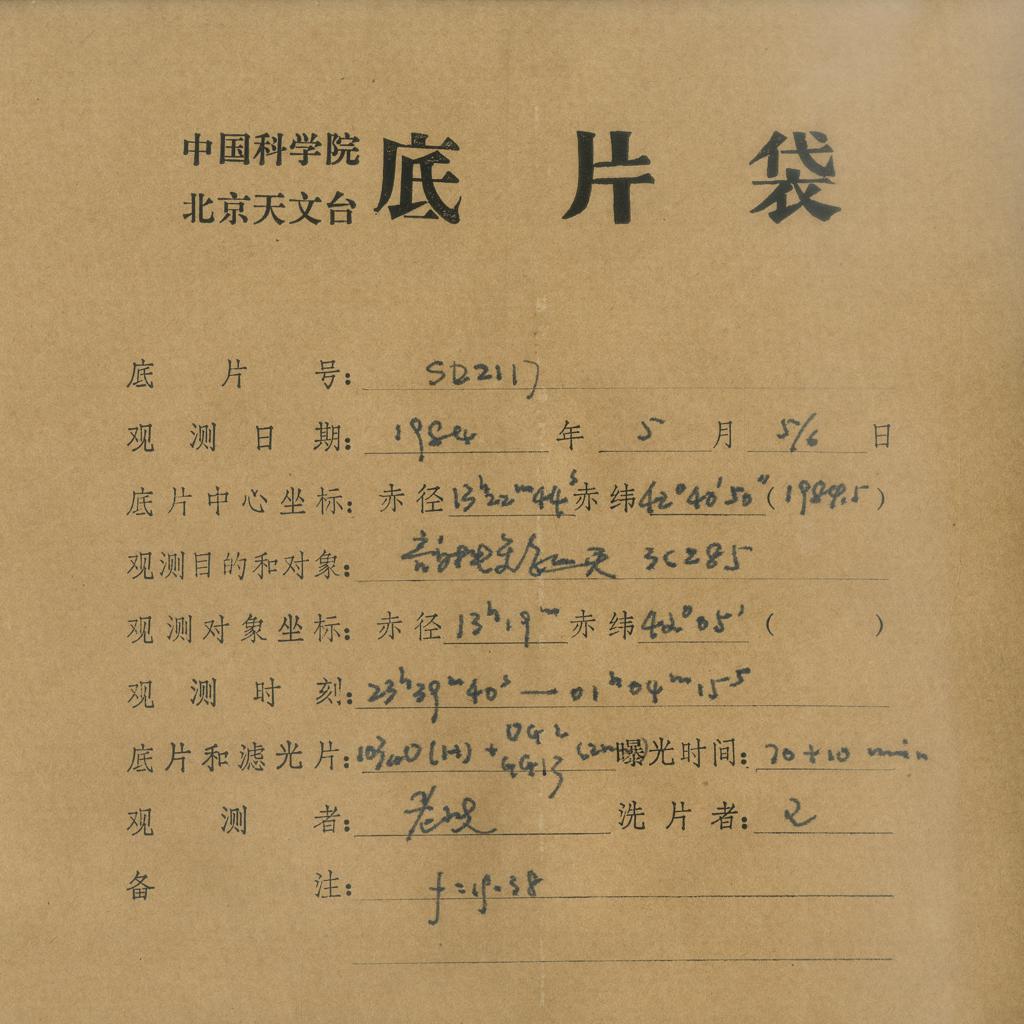 中国科学院
北京天文台
底片袋
底片号: SD2117
观测日期: 1984 年 5 月 5/6 日
底片中心坐标: 赤径 13ʰ22ᵐ44ˢ 赤纬 42°40′50″ (1984.5)
观测目的和对象: 3C285
观测对象坐标: 赤径 13ʰ19ᵐ 赤纬 42°05′ ( )
观测时刻: 23ʰ39ᵐ40ˢ — 01ʰ04ᵐ15ˢ
底片和滤光片: (H) + GG13 曝光时间: 70+10 min
观测者: 洗片者:
备注: f=19.38